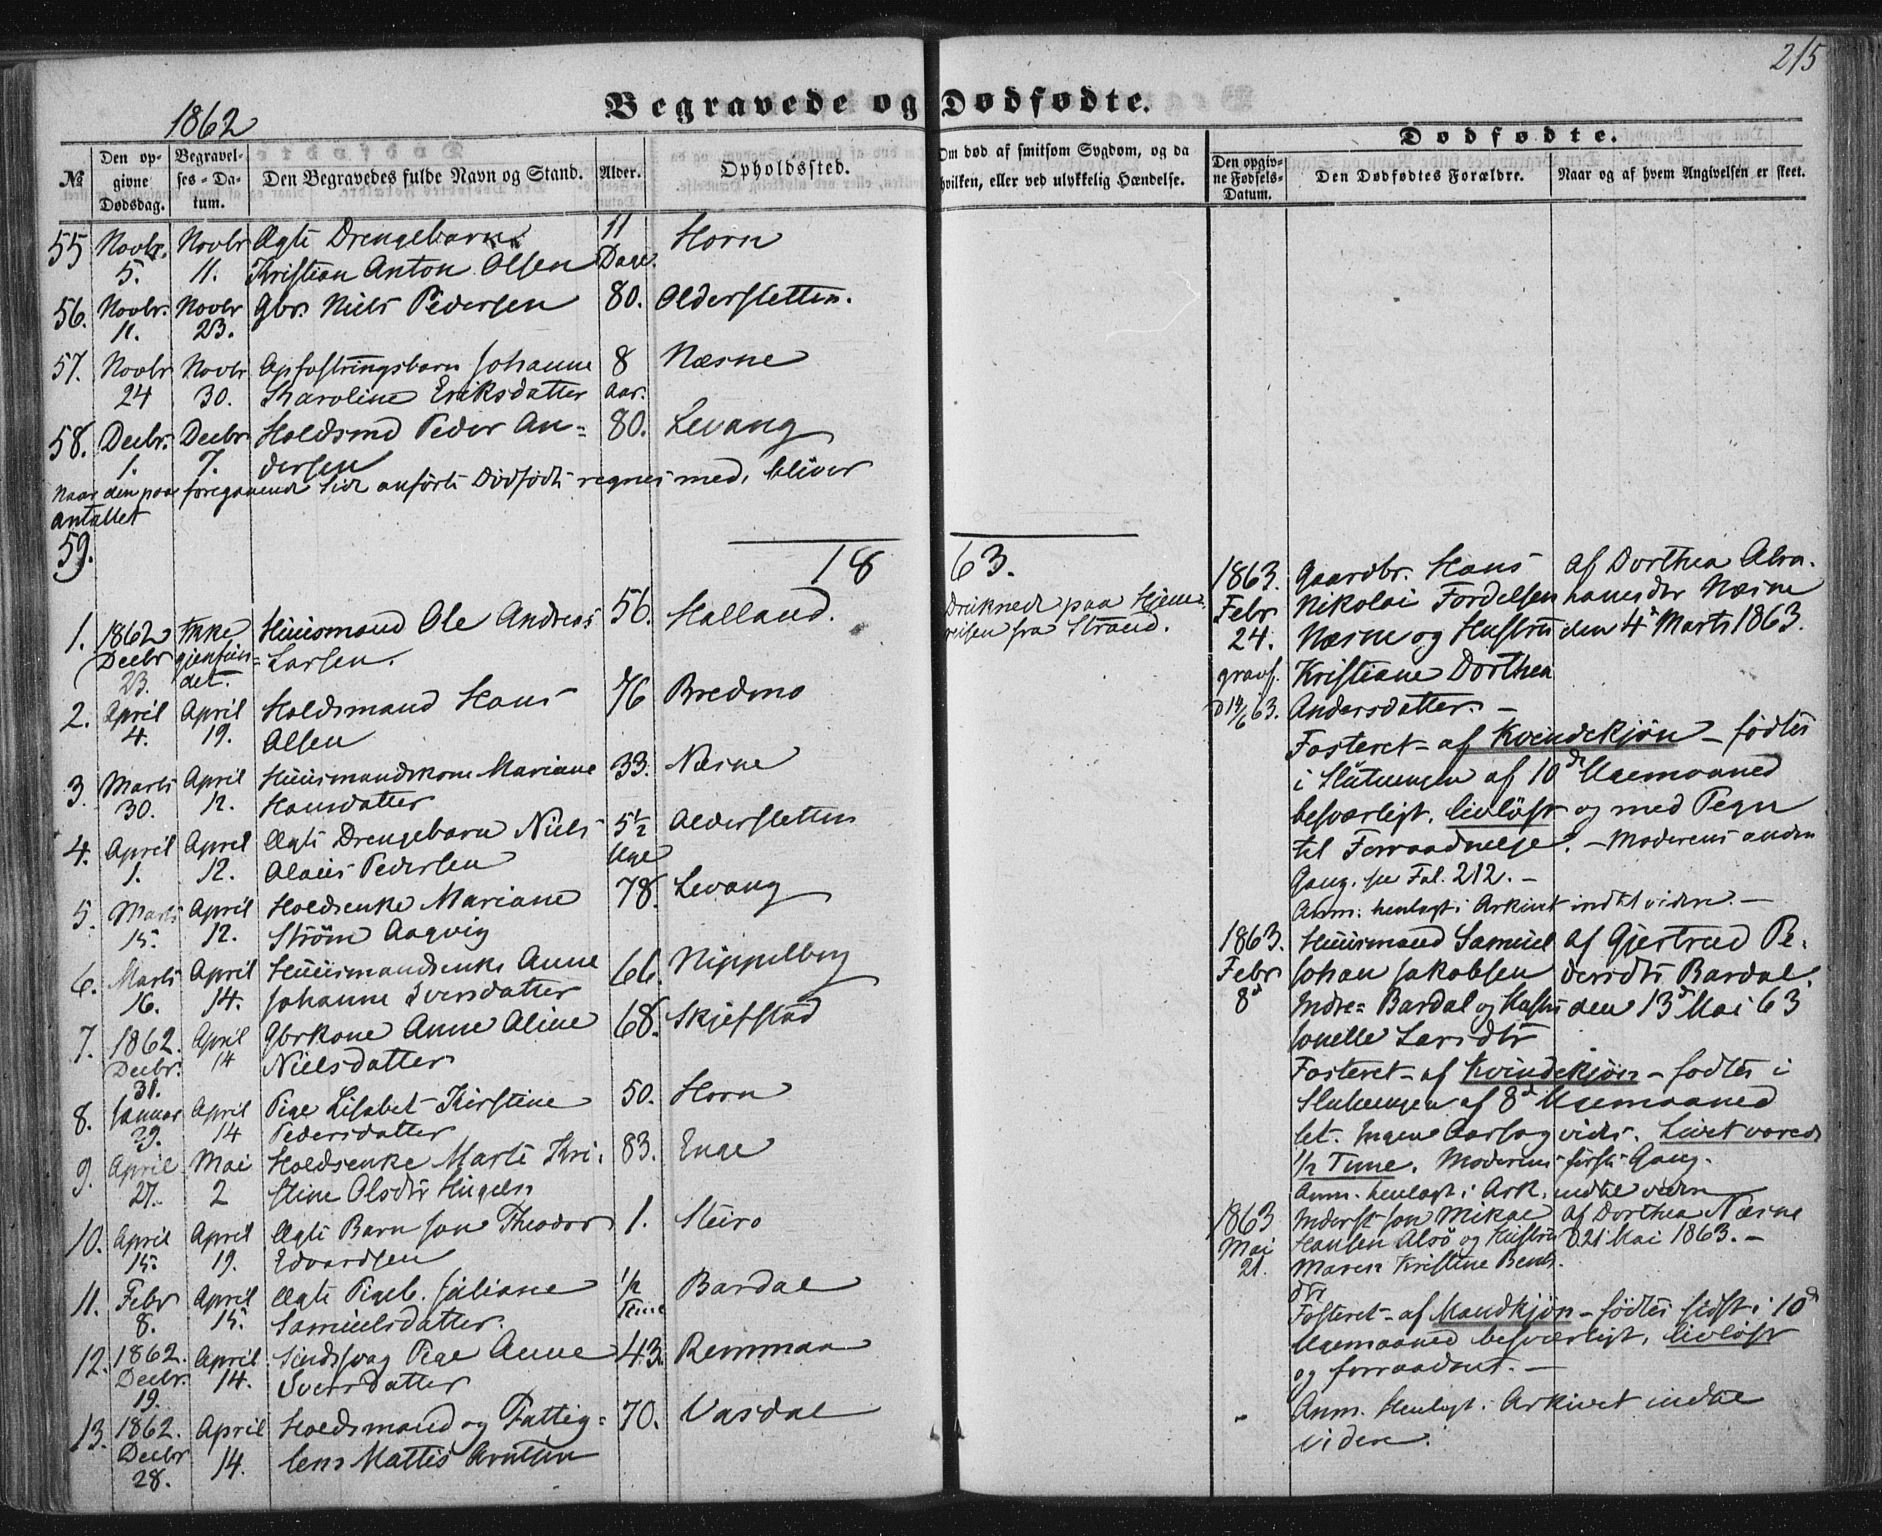 215
Begravede og Dødfødte.
1862
№
Den op-
givne
Dødsdag.
Begravel-
ses-Da-
tum.
Den Begravedes fulde Navn og Stand.
Alder.
Opholdssted.
Om død af smitsom Sygdom, og da
hvilken, eller ved ulykkelig Hændelse.
Dødfødte.
Den opgiv-
ne Fødsels-
Datum.
Den Dødfødtes Forældre.
Naar og af hvem Angivelsen er skeet.
55 Novbr. Novbr Ægte Drengebarn 11 Horn
5. 11. Kristian Anton Olsen Dage.
56. Novbr. Novbr Gbr. Niels Pedersen 80. Aldersletten.
11. 23.
57. Novbr Novbr Opfostringsbarn Johanne 8 Næsne
24 30. Karoline Eriksdatter aar.
58. Decbr. Decbr Holdsmd Peder An= 80. Levang
1. 7. dersen
Naar den paa foregaaende Side anførte Dødfødte regnes med, bliver
antallet
59.
1863.
1. 1862 Ikke Huusmand Ole Andreas 56. Halland. Druknede paa Hjem-
Decbr gjenfun= Larsen. reisen fra Strand.
23. det.
2. April April Holdsmand Hans 76 Bredmo
4. 19. Olsen
3. Marts April Huusmandskone Mariane 33. Næsne
30. 12. Hansdatter
4. April April Ægte Drengebarn Niels 5½ Aldersletten
1. 12. Olaus Pedersen Uge
5. Marts April Holdsenke Mariane 78. Levang
15. 12. Strøm Aagvig
6. Marts April Huusmandsenke Anne 66. Nippelberg
16. 14. Johanne Iversdatter
7. 1862. April Gbrkone Anne Aline 68. Skjefstad
Decbr. 14 Nielsdatter
31.
8. Januar April Pige Lisabet Kirstine 50. Horn
29. 14 Pedersdatter
9. April Mai Holdsenke Marte Kri- 83. Enge
27. 2 stine Olsdtr
10. April April Ægte Barn Jon Theodor 1. Steiro
15. 19. Edvardsen
11. Febr April Ægte Pigeb. Juliane ½ Bardal
8. 15. Samuelsdatter. Time
12. 1862. April Sindssvag Pige Anne 43. Remman
Decbr. 14. Iversdatter
19.
13. 1862. April Holdsmand og Fattig= 70. Vasdal
Decbr 14. lem Mattis Arntsen
28.
1863. Gaardbr. Hans af Dorthea Abra-
Febr Nikolai Fordelsen hamsdtr Næsne
24. Næsne og Hustru den 4de Marts 1863.
gravf. Kristiane Dorthea
D 14/6 63. Andersdatter. —
Fosteret — af Kvindekjøn — fødtes
i Slutningen af 10de Ugemaaned
besværligt, livløst og med Tegn
til Forraadnelse. — Moderens anden
Gang. se Fol. 212. —
Anm. henlagt i Arkivet indtil videre. —
1863. Huusmand Samuel af Gjertrud Pe-
Febr Johan Jakobsen dersdtr Bardal.
8d Indre- Bardal og Hustru den 13de Mai 63
Jonelle Larsdtr
Fosteret — af Kvindekjøn — fødtes i
Slutningen af 8de Ugemaaned
let. Ingen Aarsag vides. Livet varede
½ Time. Moderens første Gang.
Anm. henlagt i Ark. indtil videre
1863 Inderst Jon Mikal af Dorthea Næsne
Mai Hansen Alsø og Hustru D 21 Mai 1863. —
21. Maren Kristine Bents-
dtr
Fosteret — af Mandkjøn — fødtes sidst i 10de
Ugemaaned besværligt, livløst
og forraadnet. —
Anm. Henlagt i Arkivet indtil
videre.